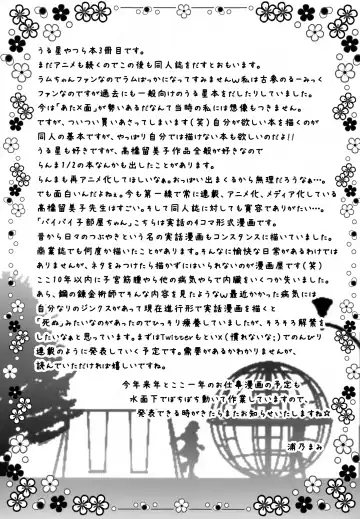 うる星やつら本3冊目です。
まだアニメも続くのでこの後も同人誌をだすとおもいます。
ラムちゃんファンなのでラムばっかになってすみませんw私は古参のるーみっく
ファンなのですが過去にも一般向けのうる星本をだしたりしていました。
今は「あた×面」が勢いあるだなんて当時の私には想像もつきません。
ですが、ついつい買いあさってしまいます(笑)自分が欲しい本を描くのが
同人の基本ですが、やっぱり自分では描けない本も欲しいのだよ!!
うる星も好きですが、高橋留美子作品全般が好きなので
らんま1/2の本なんかも出したことがあります。
らんまも再アニメ化してほしいなぁ。おっぱい出まくるから無理だろうなぁ…。
でも面白いんだよねぇ。今も第一線で常に連載、アニメ化、メディア化している
高橋留美子先生はすごい。そして同人誌に対しても寛容でありがたい…。
「バイバイ子部屋ちゃん」こちらは実話の4コマ形式漫画です。
昔から日々のつぶやきという名の実話漫画もコンスタンスに描いていました。
商業誌でも何度か描いたことがあります。そんなに愉快な日常があるわけでは
ありませんが、ネタをみつけたら描かずにはいられないのが漫画屋です(笑)
ここ10年以内に子宮筋腫やら他の病気やらで内臓をいくつか失いました。
あら、鋼の錬金術師でそんな内容を見たようなw最近かかった病気には
自分なりのジンクスがあって現在進行形で実話漫画を描くと
「死ぬ」みたいなのがあったのでひっそり療養していましたが、そろそろ解禁を
したいなぁと思っています。まずはTwitterもといX(慣れないな;)でのんびり
連載のように発表していく予定です。需要があるかわかりませんが、
読んでいただければ嬉しいですね。
今年来年とここ一年のお仕事漫画の予定も
水面下でぼちぼち動いて作業していますので
発表できる時がきたらまたお知らせいたしますね☆
浦乃まみ